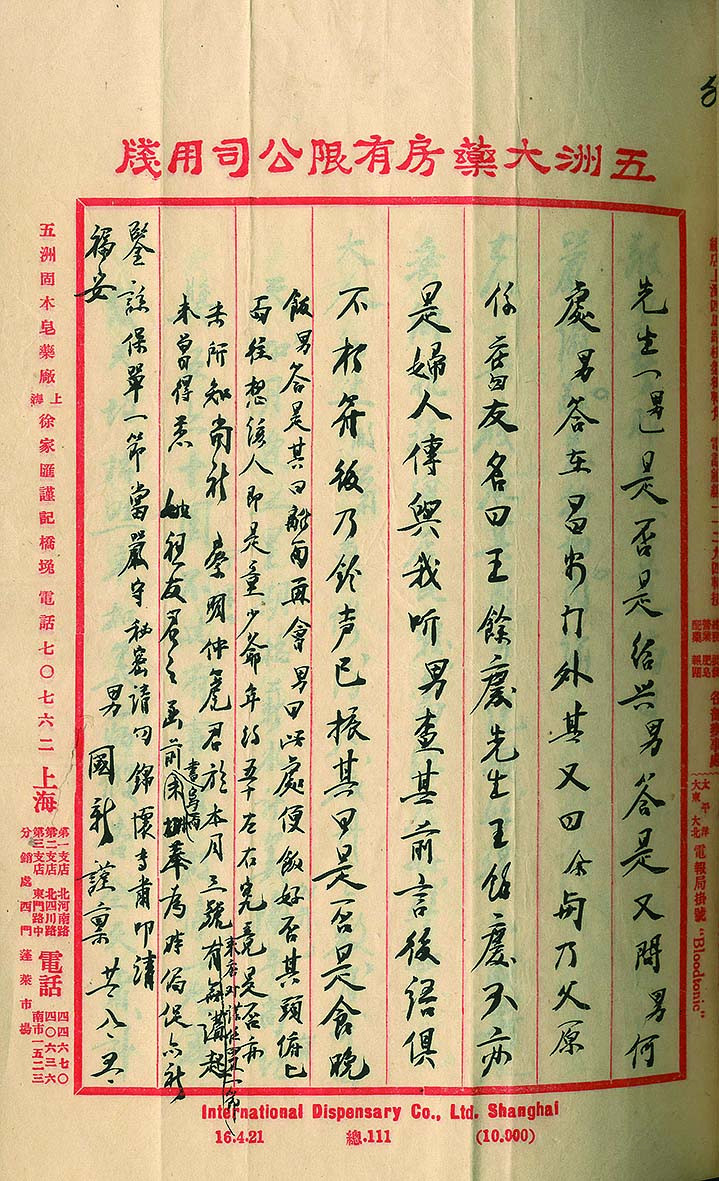 五洲大藥房有限公司用牋
先生男是否是紹興男答是又問男何
處男答在昌安打外其又曰余與乃父原
係舊友名曰王餘慶先生王餘慶不亦
是婦人傳與我听男查其前言後語俱
不相符彼乃鈴声已振其曰是否是食晚
飯男答是其曰離面再會男曰此處便飯好否其頭俯已
而往想該人即是童少爺年約五十左右究竟是否亦
未所知尚祈 察明仲麓君於本月三號有
未曾得悉 祖友君之函前奉為時局促亦祈
鑒該保單一節當嚴守秘密請勿錦懷專肅叩請
福安 男 國新謹稟
五洲固本皂藥廠 上海 徐家匯謹記橋堍 電話七〇七六二
上海
第一支店 北河南路
第二支店 北四川路
第三支店 東門路中
分銷處 西門 蓬萊市場
電話
四四六七〇
四〇六三六
南市一五二三
太平洋
大東 大北
電報局掛號 "Bloodtonic"
International Dispensary Co., Ltd. Shanghai
16.4.21 總.111 (10.000)